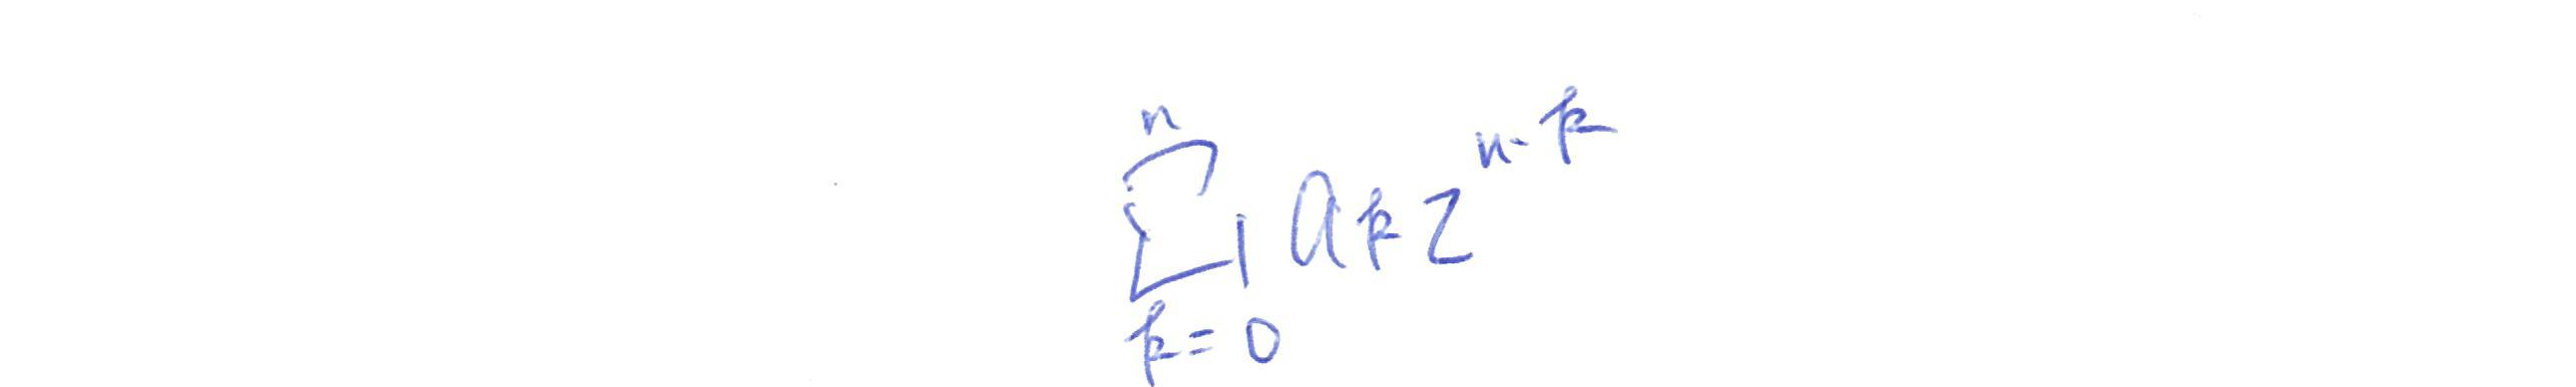 $\sum_{k=0}^{n} a_k z^{n-k}$